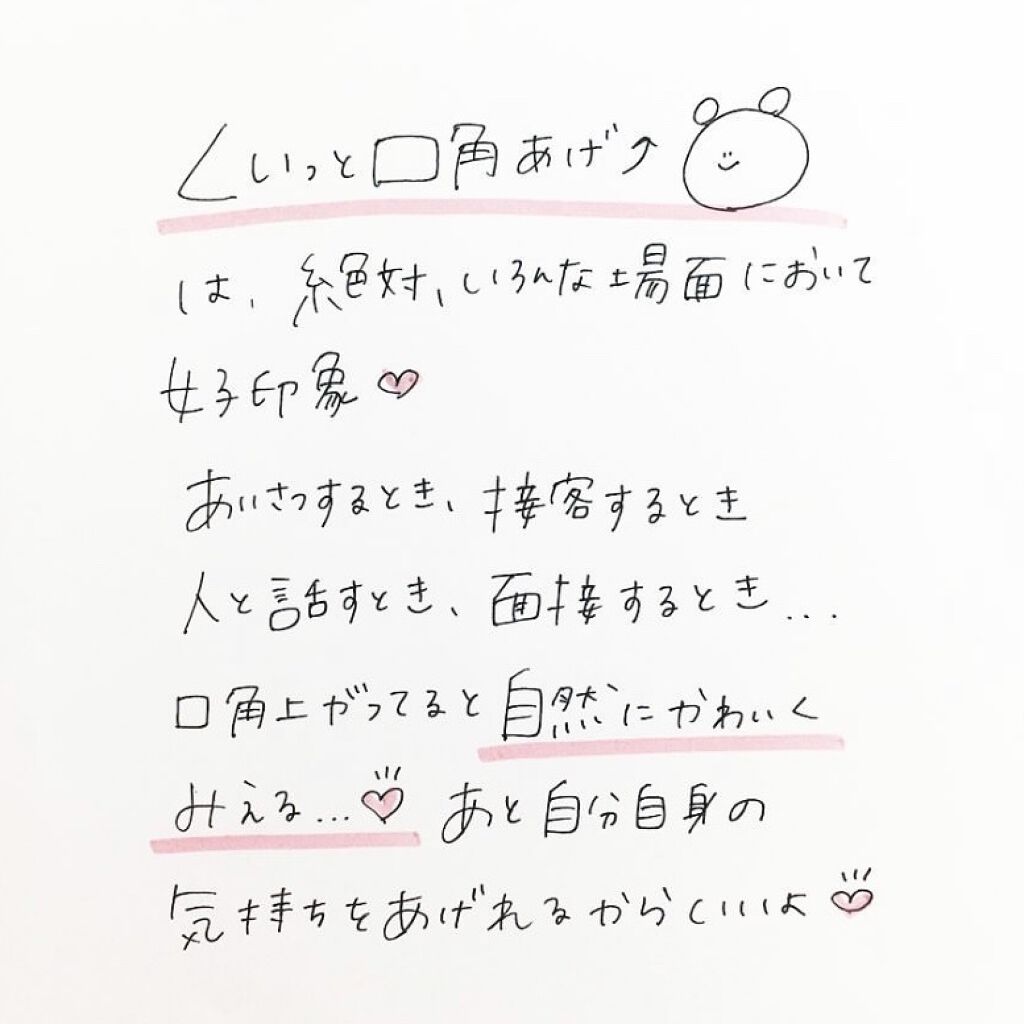 くいっと口角あげ↗
は、絶対、いろんな場面において
好印象♡
あいさつするとき、接客するとき
人と話すとき、面接するとき...
口角上がってると自然にかわいく
みえる...♡ あと自分自身の
気持ちをあげれるからいいよ♡